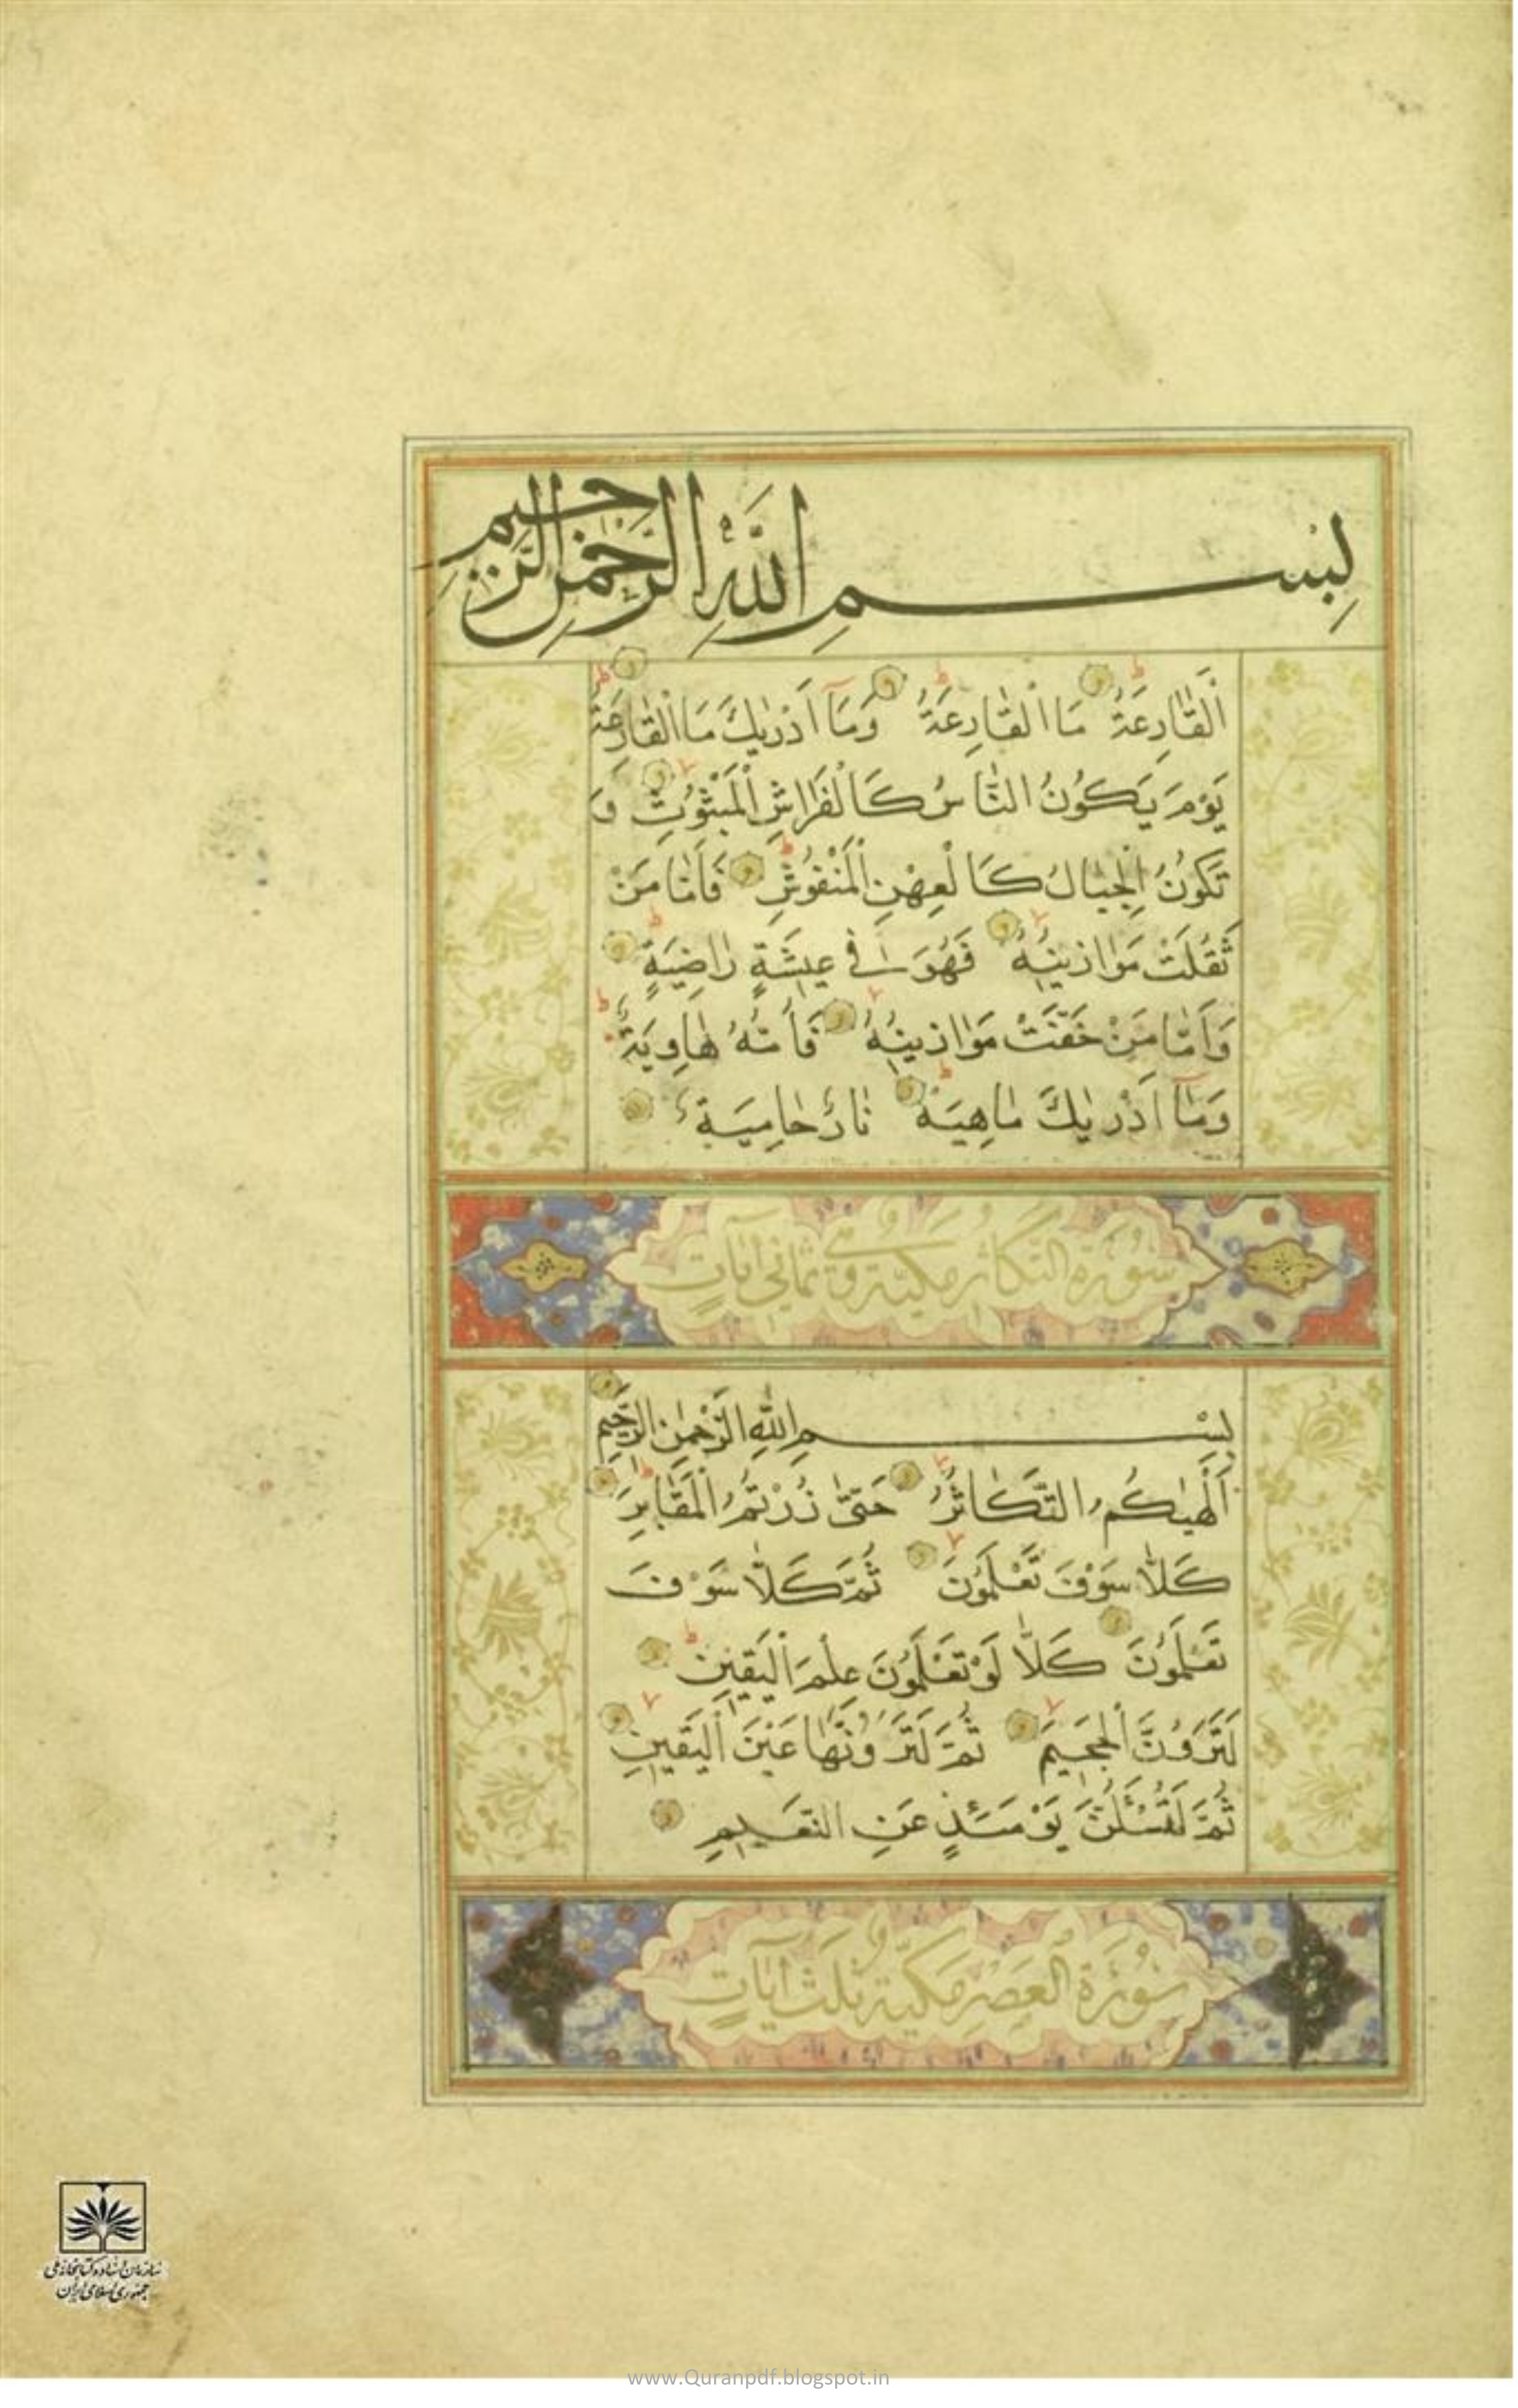 بِسْمِ اللَّهِ الرَّحْمٰنِ الرَّحِيمِ
اَلْقَارِعَةُ مَا الْقَارِعَةُ وَمَآ اَدْرٰيكَ مَا الْقَارِعَةُ
يَوْمَ يَكُونُ النَّاسُ كَالْفَرَاشِ الْمَبْثُوثِ وَ
تَكُونُ الْجِبَالُ كَالْعِهْنِ الْمَنْفُوشِ فَاَمَّا مَنْ
ثَقُلَتْ مَوَازِينُهُ فَهُوَ فِي عِيشَةٍ رَاضِيَةٍ
وَاَمَّا مَنْ خَفَّتْ مَوَازِينُهُ فَاُمُّهُ هَاوِيَةٌ
وَمَآ اَدْرٰيكَ مَاهِيَهْ نَارٌ حَامِيَةٌ
سُورَةُ التَّكَاثُرِ مَكِّيَّةٌ وَهِيَ ثَمَانِي آيَاتٍ
بِسْمِ اللَّهِ الرَّحْمٰنِ الرَّحِيمِ
اَلْهٰيكُمُ التَّكَاثُرُ حَتّٰى زُرْتُمُ الْمَقَابِرَ
كَلَّا سَوْفَ تَعْلَمُونَ ثُمَّ كَلَّا سَوْفَ
تَعْلَمُونَ كَلَّا لَوْ تَعْلَمُونَ عِلْمَ الْيَقِينِ
لَتَرَوُنَّ الْجَحِيمَ ثُمَّ لَتَرَوُنَّهَا عَيْنَ الْيَقِينِ
ثُمَّ لَتُسْئَلُنَّ يَوْمَئِذٍ عَنِ النَّعِيمِ
سُورَةُ الْعَصْرِ مَكِّيَّةٌ ثَلٰثُ آيَاتٍ
سازمان اسناد و کتابخانه ملی
جمهوری اسلامی ایران
www.Quranpdf.blogspot.in